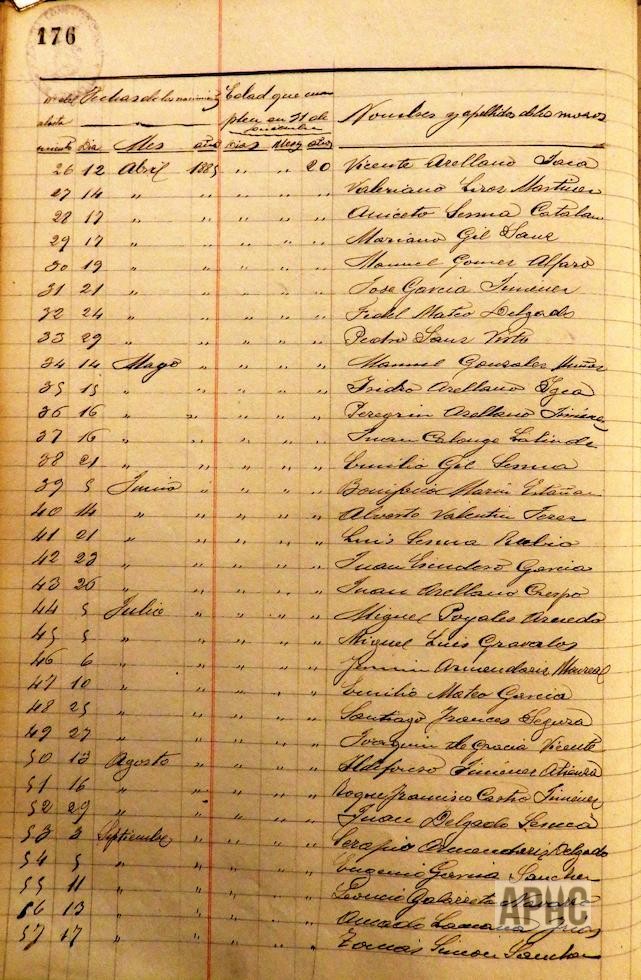 176
Fechas de los nacimientos Edad que cum
alista plen en 31 de
miento Dia Mes años Dias Meses años Nombres y apellidos de los mozos
26 12 Abril 1885 " " 20 Vicente Arellano
27 14 " " " " " Valeriano Martinez
28 17 " " " " " Aniceto Sesma Catalan
29 17 " " " " " Mariano Gil Sanz
30 19 " " " " " Manuel Gomez Alfaro
31 21 " " " " " Jose Garcia Jimenez
32 24 " " " " " Fidel Mateo Delgado
33 29 " " " " " Pedro Sanz
34 14 Mayo " " " " Manuel Gonzales Muñoz
35 15 " " " " " Isidro Arellano Igea
36 16 " " " " " Peregrin Arellano Jiménez
37 16 " " " " " Juan Calonge
38 21 " " " " " Emilio Gil Sesma
39 5 Junio " " " " Bonifacio Marin
40 14 " " " " " Alverto Valentin
41 21 " " " " " Luis Sesma Rubio
42 23 " " " " " Juan Garcia
43 26 " " " " " Juan Arellano Crespo
44 5 Julio " " " " Miguel Poyales
45 5 " " " " " Miguel Luis Gravalos
46 6 " " " " " Armendariz
47 10 " " " " " Emilio Mateo Garcia
48 25 " " " " " Santiago Frances Segura
49 27 " " " " " Joaquin de Gracia Vicente
50 13 Agosto " " " " Ildefonso Jiménez
51 16 " " " " " Roque Francisco Castro Jiménez
52 29 " " " " " Juan Delgado Sesma
53 3 Septiembre " " " " Serapio Armendariz Delgado
54 5 " " " " " Eugenio Garcia Sanchez
55 11 " " " " " Leoncio Galarreta
56 13 " " " " " Amado
57 17 " " " " " Tomás Simon Sanchez
APHC